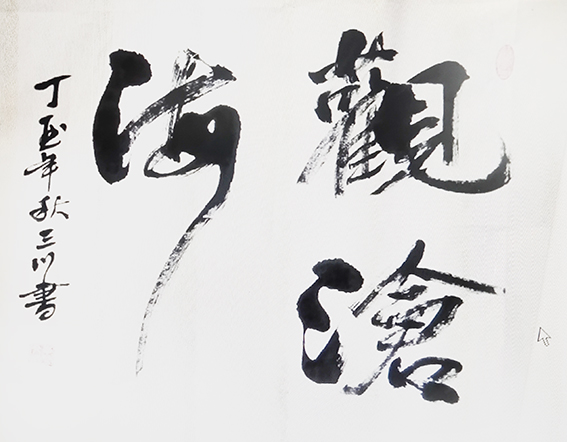 觀滄
海
丁酉年秋三川書